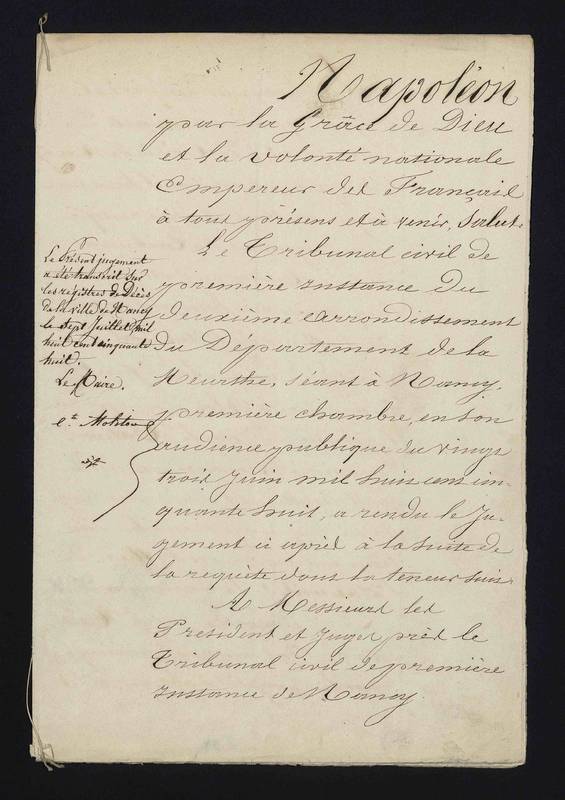 Napoléon
par la Grâce de Dieu
et la volonté nationale
Empereur des Français
à tous présens et à venir, Salut.
Le Tribunal civil de
première instance du
deuxième arrondissement
du Département de la
Meurthe, séant à Nancy,
première chambre, en son
audience publique du vingt
trois juin mil huit cent cin-
quante huit, a rendu le Ju-
gement ci après à la suite de
la requête dont la teneur suit.
A Messieurs les
Président et Juges près le
Tribunal civil de première
instance de Nancy.
Le Présent jugement
a été transcrit sur
les registres de Décès
de la ville de Nancy
le sept Juillet mil
huit cent cinquante
huit.
Le Maire.